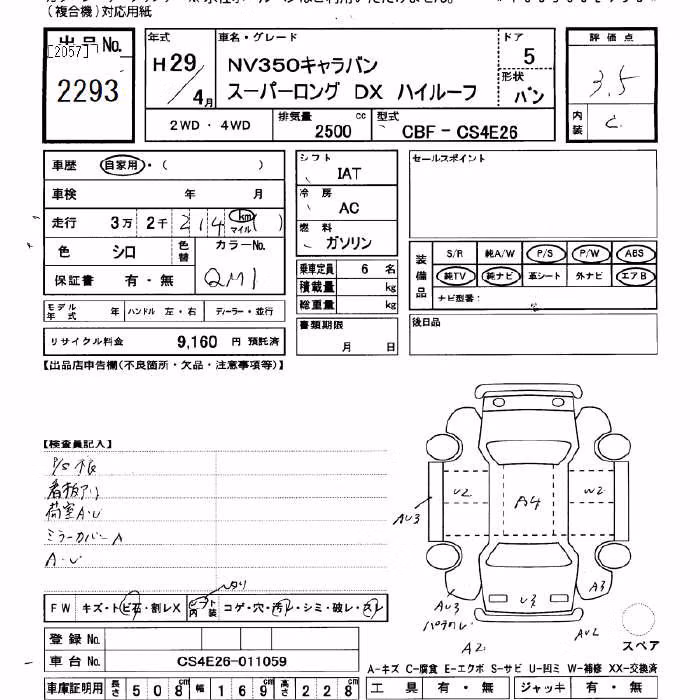 (複合機)対応用紙
出品No.
[2057]
2293
年式
H29
4月
車名・グレード
NV350キャラバン
スーパーロング DX ハイルーフ
ドア
5
形状
バン
2WD・4WD
排気量
2500 cc
型式
CBF - CS4E26
評価点
3.5
内装
C
車歴 自家用・( )
車検 年 月
走行 3万 2千 214 km マイル ( )
色 シロ 色替 カラーNo.
QM1
保証書 有・無
モデル年式 年 ハンドル 左・右 ディーラー・並行
リサイクル料金 9,160 円 預託済
シフト
IAT
冷房
AC
燃料
ガソリン
乗車定員 6 名
積載量 kg
総重量 kg
書類期限
月 日
セールスポイント
装備品
S/R 純A/W P/S P/W ABS
純TV 純ナビ 革シート 外ナビ エアB
ナビ型番:
後日品
【出品店申告欄(不良箇所・欠品・注意事項等)】
【検査員記入】
P/S不良
看板アリ
荷室A・U
ミラーカバーA
A・U
FW キズ・トビ石・割レX
シフト内装 コゲ・穴・汚レ・シミ・破レ・スレ
U2
W2
A4
AU3
AU3
U3
A3
A2
AU2
スペア
登録No.
車台No. CS4E26-011059
車庫証明用 長さ 508cm 幅 169cm 高さ 228cm
A-キズ C-腐食 E-エクボ S-サビ U-凹ミ W-補修 XX-交換済
工具 有・無 ジャッキ 有・無